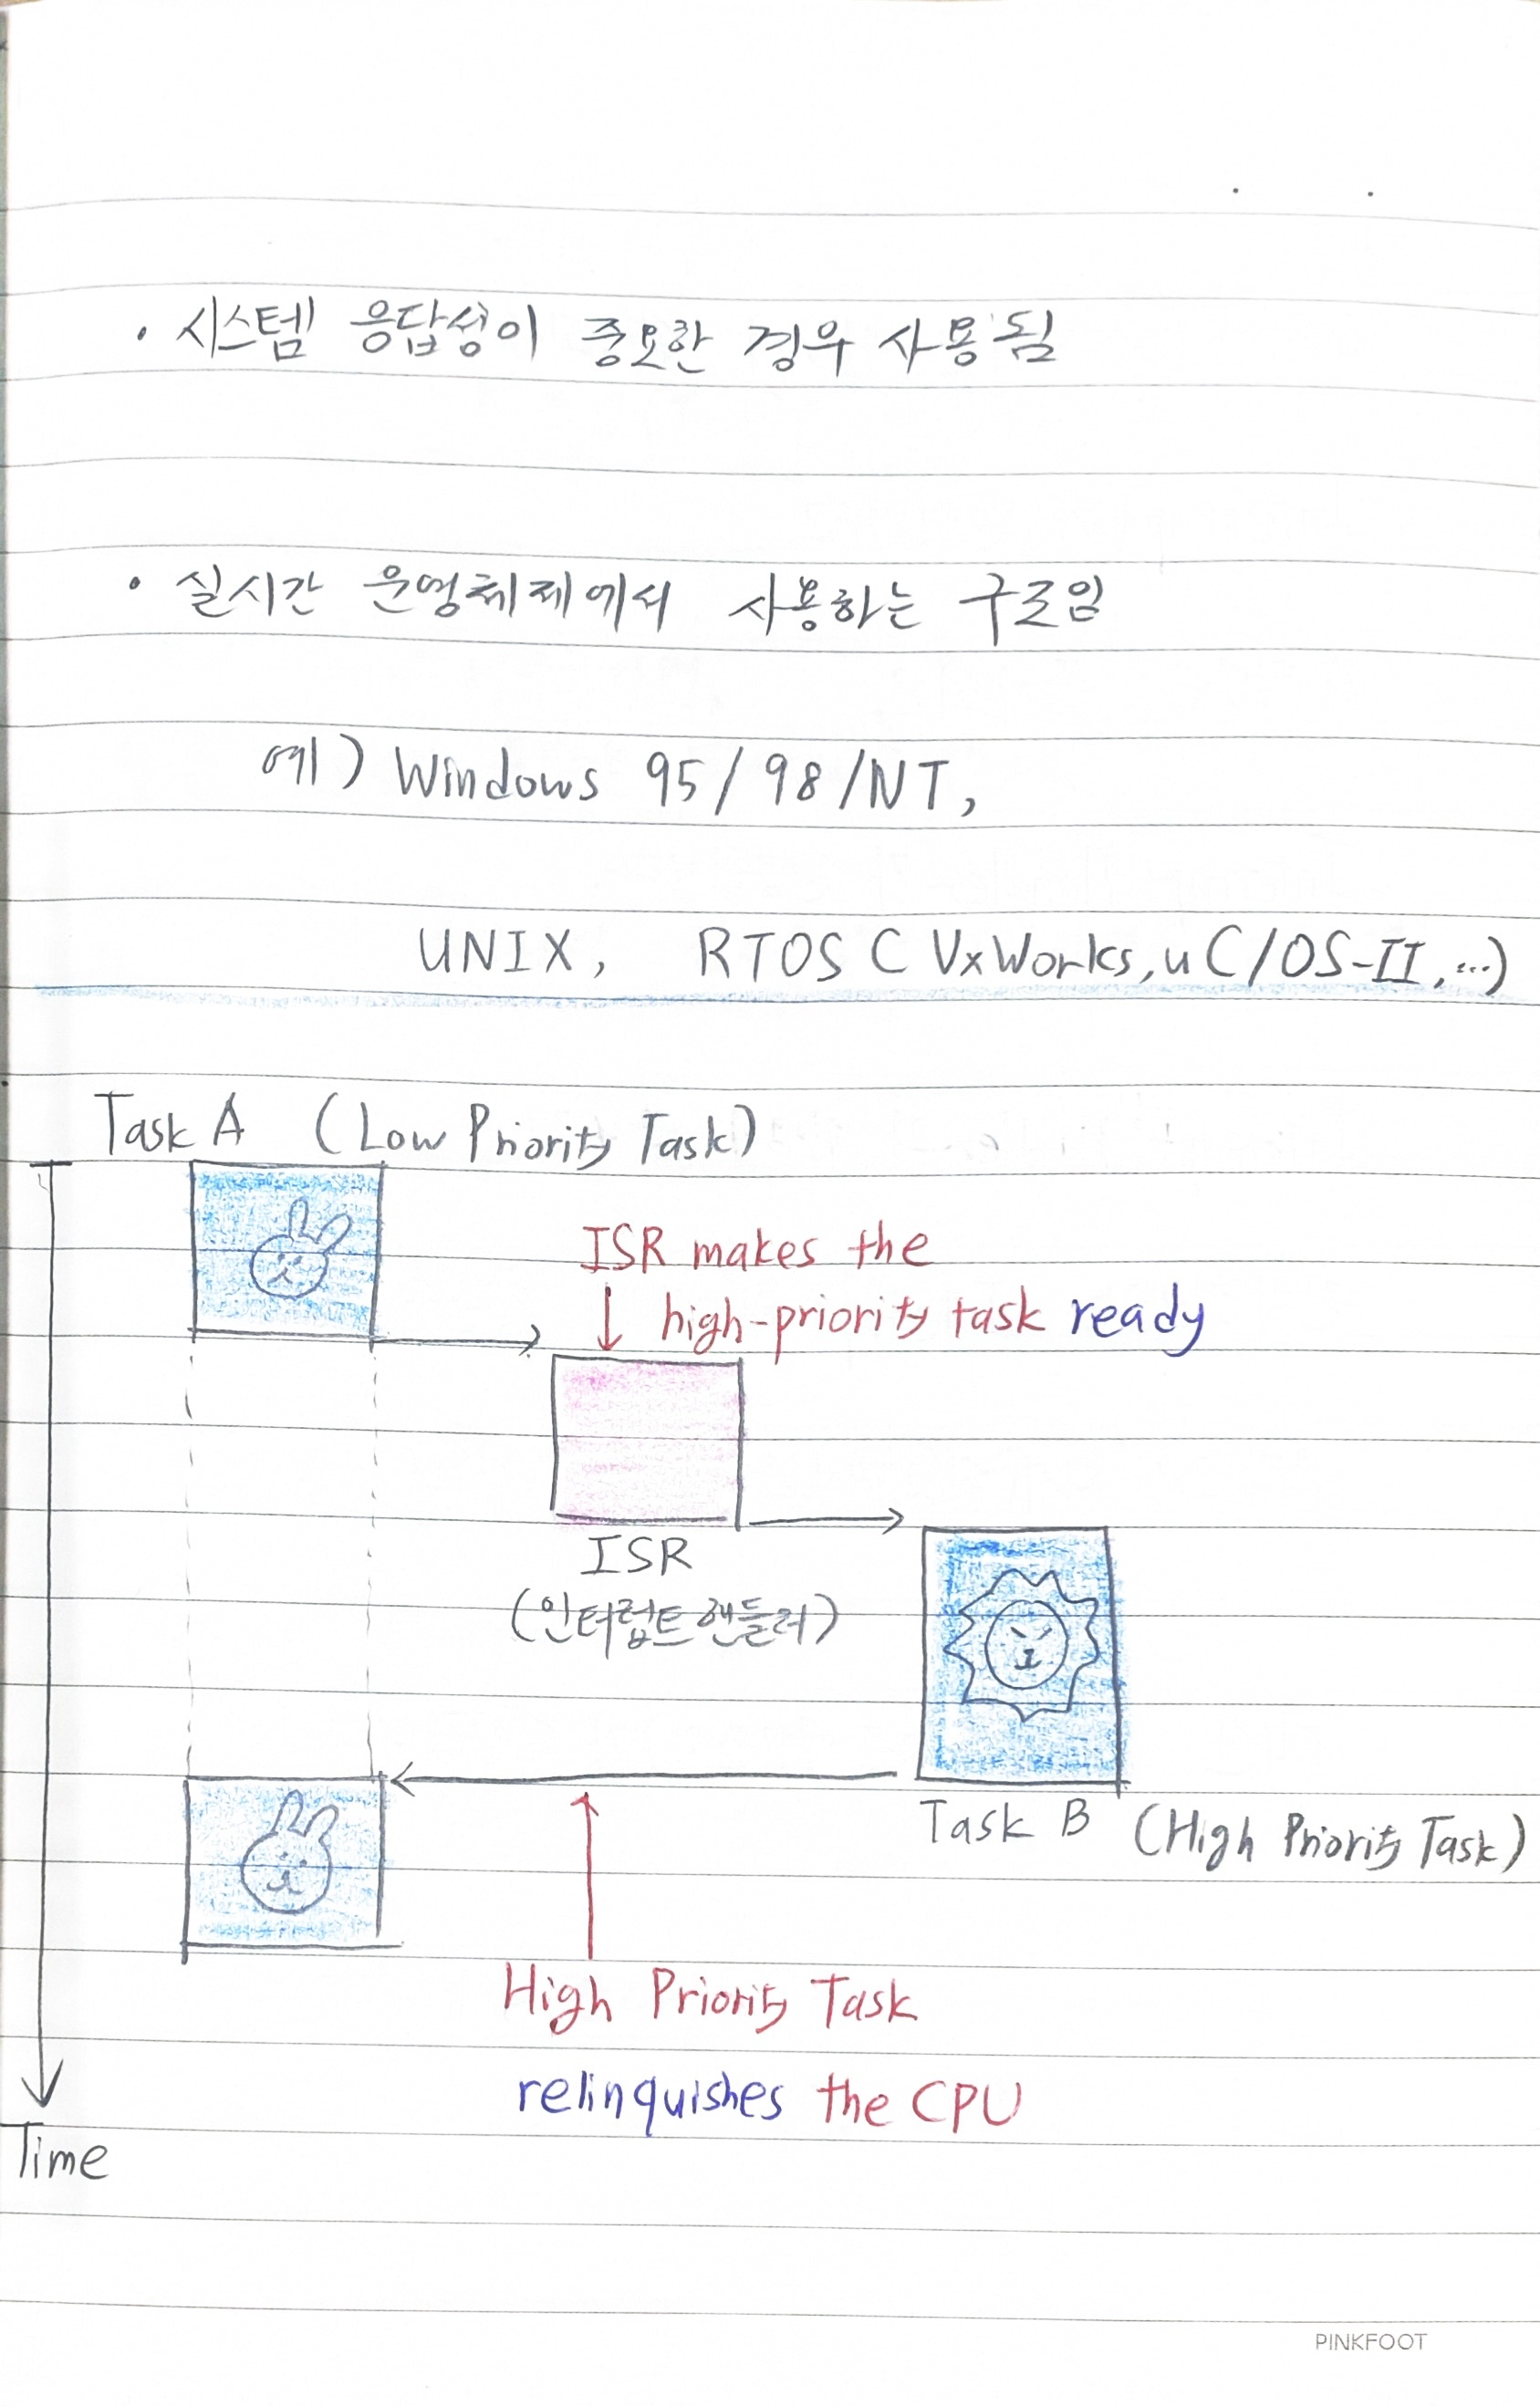 · 시스템 응답성이 중요한 경우 사용됨
· 실시간 운영체제에서 사용하는 구조임
예) Windows 95/98/NT,
UNIX, RTOS ( VxWorks, uC/OS-II, ...)
Task A (Low Priority Task)
ISR makes the
high-priority task ready
ISR
(인터럽트 핸들러)
Task B (High Priority Task)
High Priority Task
relinquishes the CPU
Time
PINKFOOT